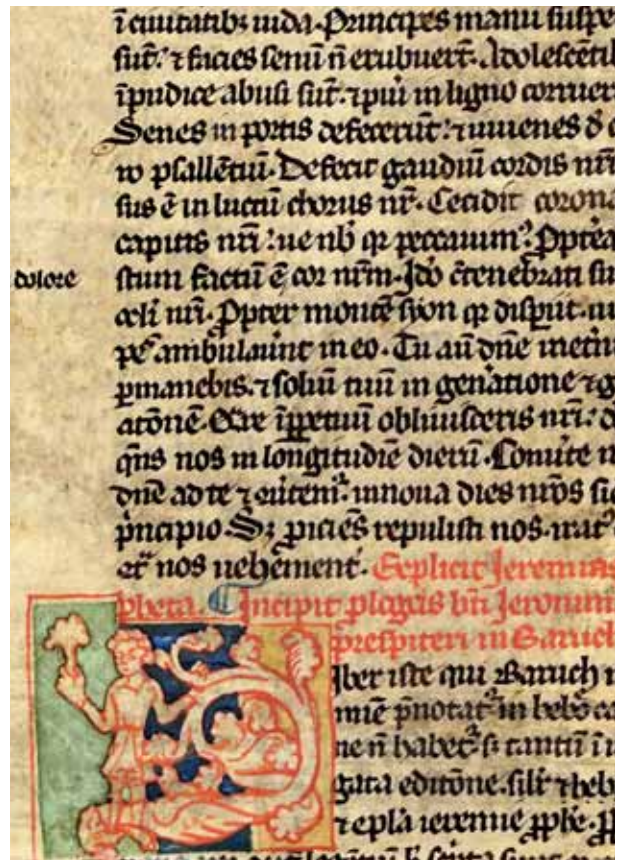 ī ciuitatibꝫ iuda. Principes manu suspe
sūt. ⁊ facies senum ñ erubuerūt. Adolescētib
īpudice abusi sūt. ⁊ pui in ligno corruer
Senes in portis defecerūt: ⁊ iuuenes d c
ro psallētiū. Defecit gaudiū cordis nr̄i
sus ē in luctū chorus nr̄. Cecidit corona
capitis nr̄i: ue nb qr peccauim. Ꝓptea
dolore
stum factū ē cor nr̄m. Ido cͦtenebrati su
coli nr̄i. Ꝓpter montē syon qr disperiit. uu
pes ambulauūt in eo. Tu aū dn̄e ineter
ꝑmanebis. ⁊ soliū tuū in gen̄atione ⁊ g
atōnē. Quare īꝑpetuū obliuisceris nr̄i: d
qn̄s nos in lōngitudīe dierū. Conuerte n
dn̄e ad te ⁊ ꝯuertem̄. innoua dies nr̄os sic
pͥncipio. Sꝫ ꝓiciēs repulisti nos. irat
ꝯ̄tͣ nos uehēment. Explicit Jeremias
ꝓpheta. Incipit ꝓlogus bt̄i Jeronimi
prespiteri in Baruch
Liber iste qui Baruch n
mīe p̄notat in hebͦo ca
ne ñ habet s tantū ī u
gata editōne. silr ⁊ heb
⁊ epl̄a ieremie ꝓph̄e. ꝓ